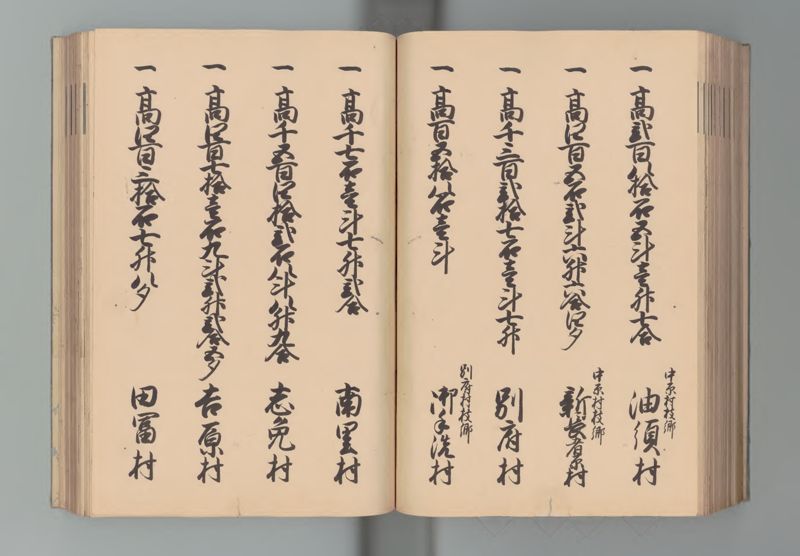 一 高弐百八拾石五斗壱升七合
中原村枝郷
油須村
一 高四百五石弐斗六升六合四夕
中原村枝郷
新長者原村
一 高千三百弐拾七石壱斗七升
別府村
一 高百五拾八石壱斗
別府村枝郷
御手洗村
一 高千七石壱斗七升弐合
南里村
一 高千五百四拾弐石八斗八升九合
志免村
一 高四百七拾壱石九斗弐升弐合五夕
吉原村
一 高四百三拾石七升八夕
田冨村